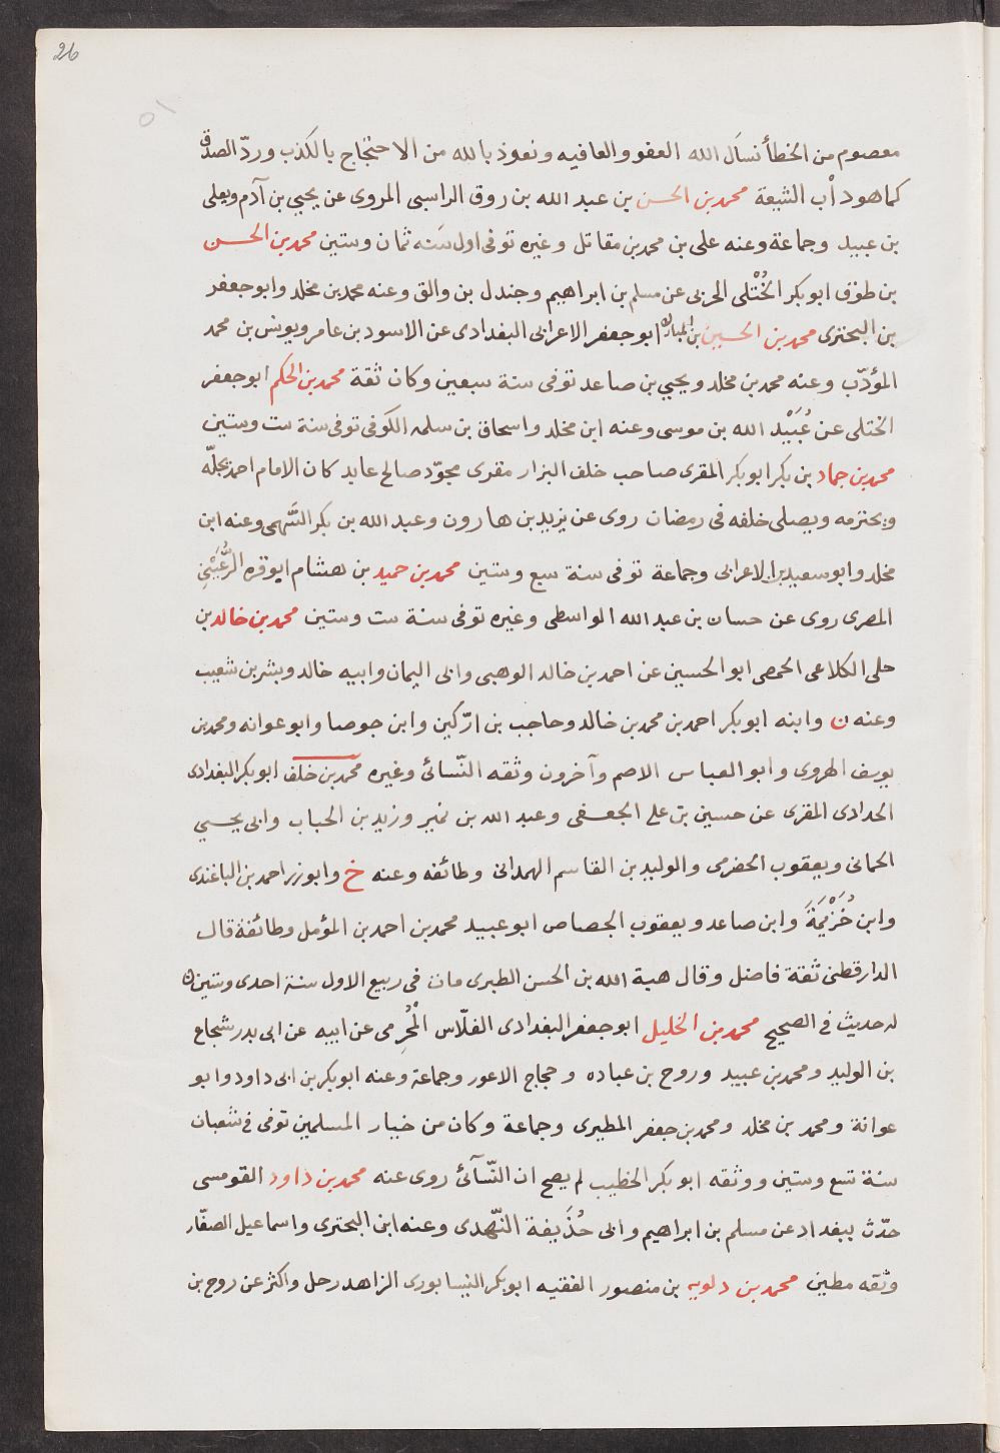 26
٥١
معصوم من الخطأ نسأل الله العفو والعافيه ونعوذ بالله من الاحتجاج بالكذب وردّ الصدق
كما هو دأب الشيعة محمد بن الحسن بن عبد الله بن روق الراسبى المروى عن يحيى بن آدم ويعلى
بن عبيد وجماعة وعنه على بن محمد بن مقاتل وغيره توفى اول سَنه ثمان وستين محمد بن الحسن
بن طوق ابو بكر الخُتْلى الحربى عن مسلم بن ابراهيم وجندل بن والق وعنه محمد بن مخلد وابو جعفر
بن البخترى محمد بن الحسين بن المبارك ابو جعفر الاعرابى البغدادى عن الاسود بن عامر ويونس بن محمد
المؤدّب وعنه محمد بن مخلد ويحيى بن صاعد توفى سنة سبعين وكان ثقة محمد بن الحكم ابو جعفر
الختلى عن عُبَيْد الله بن موسى وعنه ابن مخلد واسحاق بن سلمه الكوفى توفى سنة ست وستين
محمد بن حماد بن بكر ابو بكر المقرى صاحب خلف البزار مقرى مجوّد صالح عابد كان الامام احمد يجلّه
ويحترمه ويصلى خلفه فى رمضان روى عن يزيد بن هارون وعبد الله بن بكر السَّهمى وعنه ابن
مخلد وابو سعيد بن الاعرابى وجماعة توفى سنة سبع وستين محمد بن حميد بن هشام ابو قره الرُّعَيْنِى
المصرى روى عن حسان بن عبد الله الواسطى وغيره توفى سنة ست وستين محمد بن خالد بن
حلى الكلاعى الحمصى ابو الحسين عن احمد بن خالد الوهبى وابى اليمان وابيه خالد وبشر بن شعيب
وعنه ن وابنه ابو بكر احمد بن محمد بن خالد وحاجب بن ارّكين وابن جوصا وابو عوانه ومحمد بن
يوسف الهروى وابو العباس الاصم وآخرون وثقه النّسائى وغيره محمد بن خلف ابو بكر البغدادى
الحدادى المقرى عن حسين بن على الجعفى وعبد الله بن نمير وزيد بن الحباب وابى يحيى
الحمانى ويعقوب الحضرمى والوليد بن القاسم الهمدانى وطائفه وعنه خ وابو زر احمد بن الباغندى
وابن خُزَيْمَةَ وابن صاعد ويعقوب الجصاص ابو عبيد محمد بن احمد بن المؤمل وطائفة قال
الدارقطنى ثقة فاضل وقال هبة الله بن الحسن الطبرى مات فى ربيع الاول سنة احدى وستين
له حديث فى الصحيح محمد بن الخليل ابو جعفر البغدادى الفلّاس المُخَرِمى عن ابيه عن ابى بدر شجاع
بن الوليد ومحمد بن عبيد وروح بن عباده وحجاج الاعور وجماعة وعنه ابو بكر بن ابى داود وابو
عوانة ومحمد بن مخلد ومحمد بن جعفر المطيرى وجماعة وكان من خيار المسلمين توفى فى شعبان
سنة تسع وستين ووثقه ابو بكر الخطيب لم يصح ان النّسآئى روى عنه محمد بن داود القومسى
حدّث ببغداد عن مسلم بن ابراهيم وابى حُذَيفة النّهدى وعنه ابن البخترى واسماعيل الصفّار
وثقه مطين محمد بن دلويه بن منصور الفقيه ابو بكر النيسابورى الزاهد رحل واكثر عن روح بن